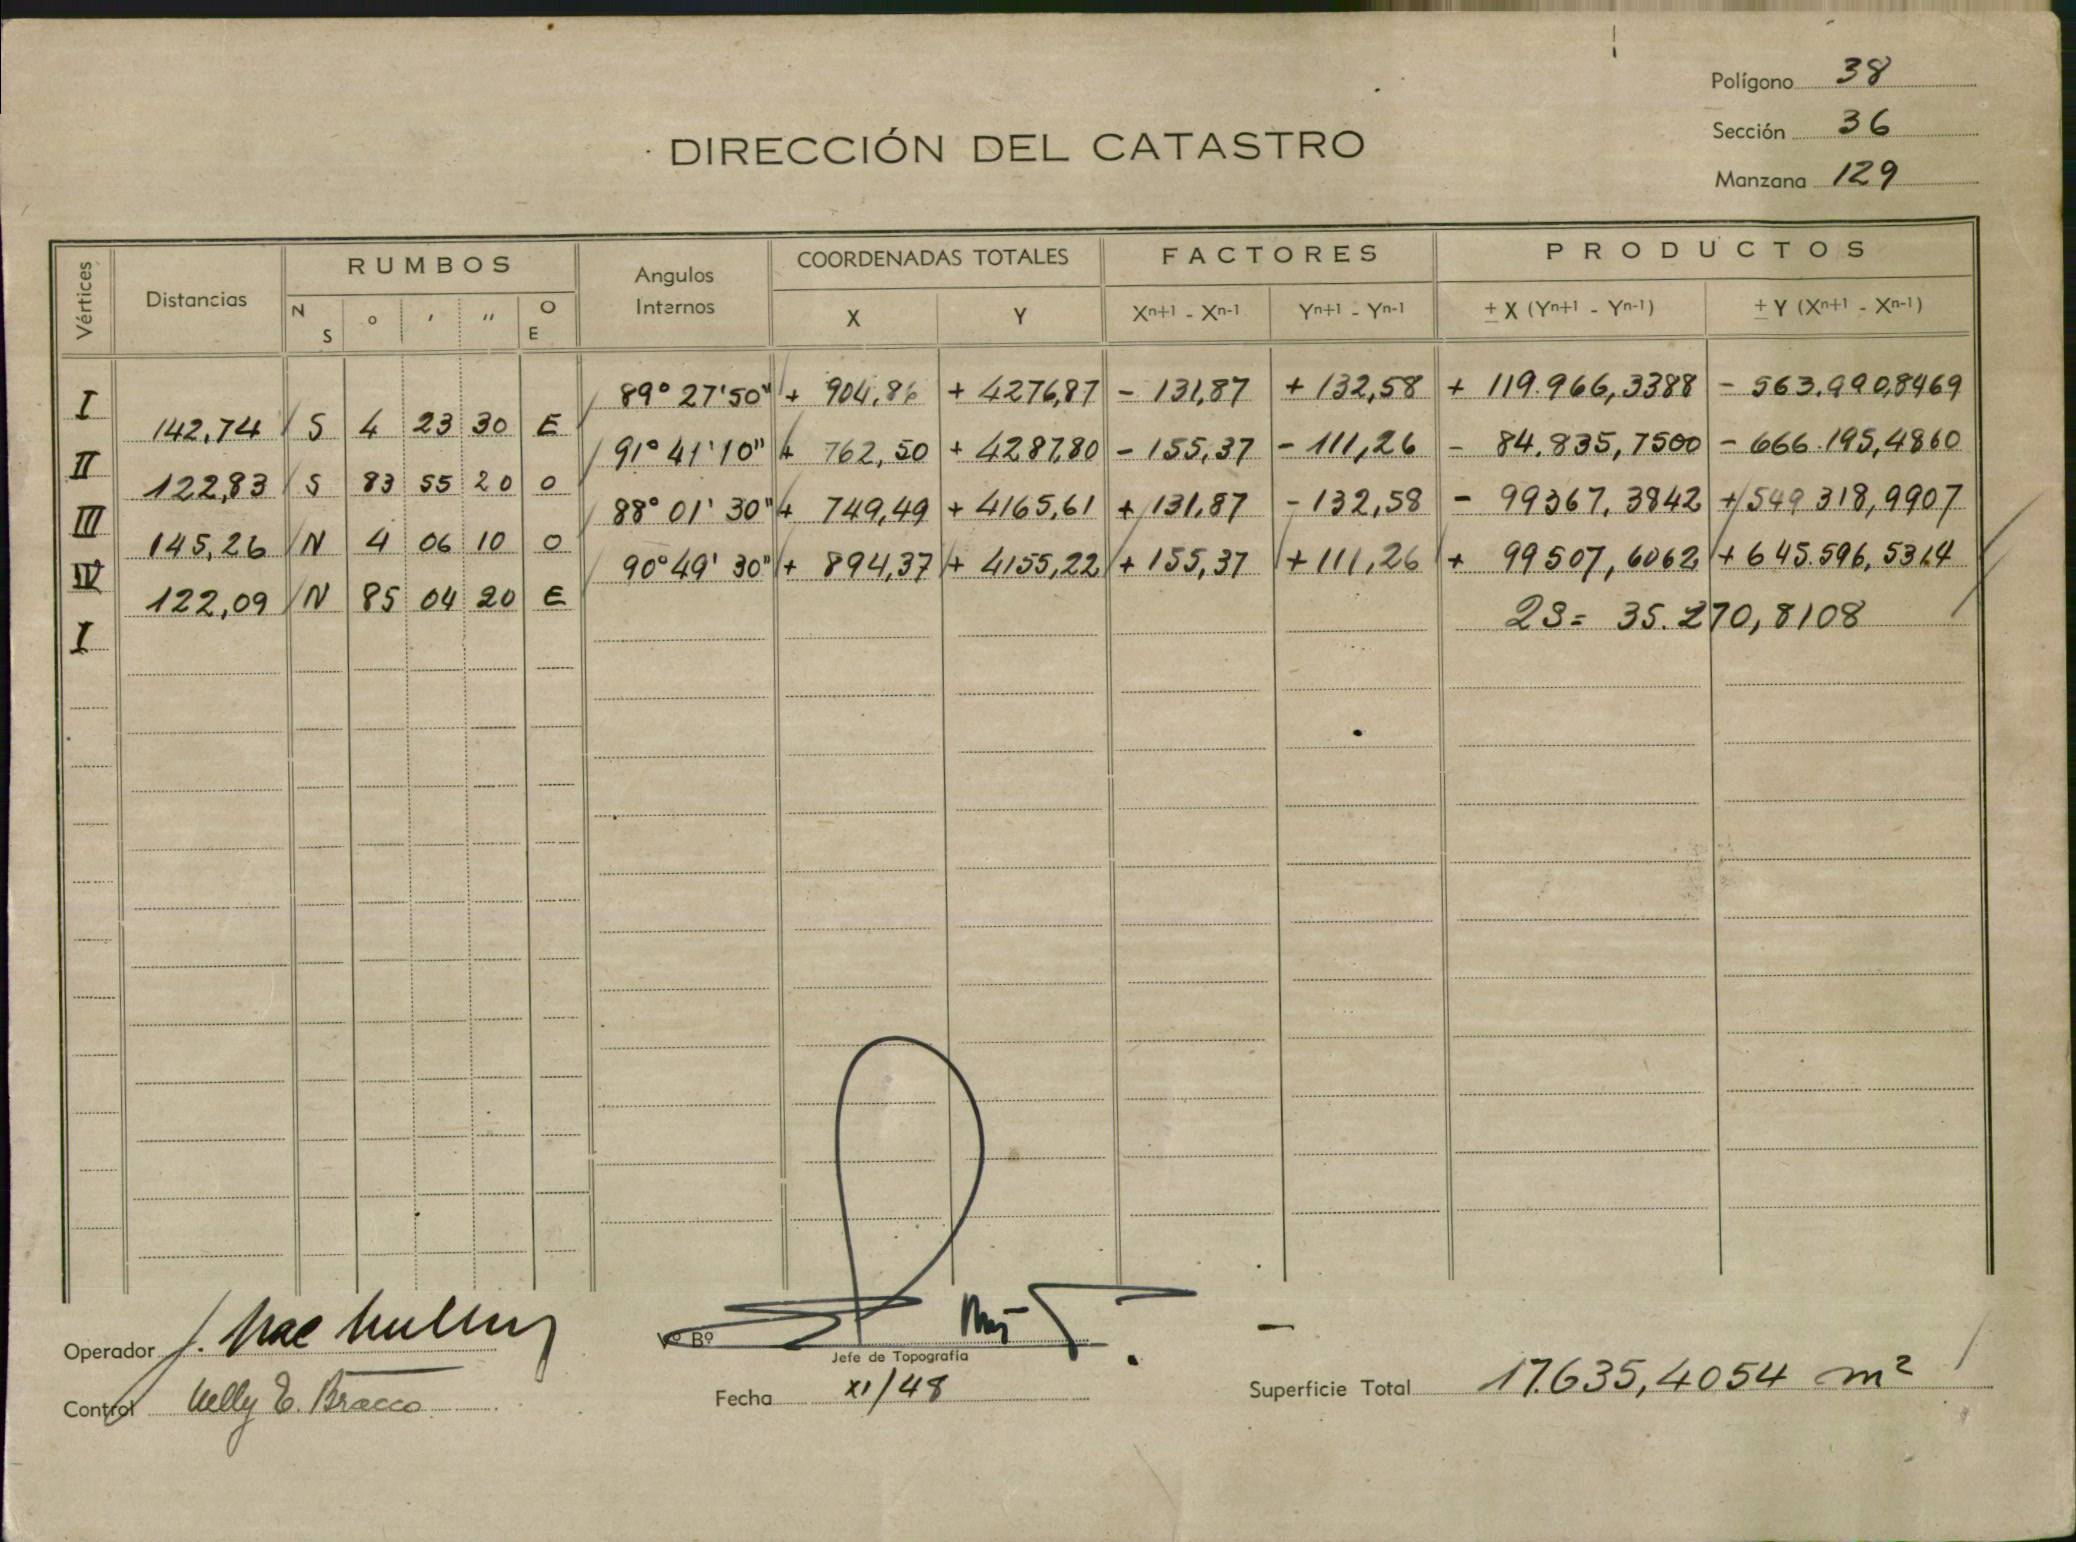 Polígono 38
Sección 36
Manzana 129
DIRECCIÓN DEL CATASTRO
Vértices Distancias RUMBOS Angulos Internos COORDENADAS TOTALES FACTORES PRODUCTOS
N S ° ' " O E X Y Xn+1 - Xn-1 Yn+1 - Yn-1 ± X (Yn+1 - Yn-1) ± Y (Xn+1 - Xn-1)
I 89° 27' 50" + 904,86 + 4276,87 - 131,87 + 132,58 + 119.966,3388 - 563.990,8469
142,74 S 4 23 30 E
II 91° 41' 10" + 762,50 + 4287,80 - 155,37 - 111,26 - 84.835,7500 - 666.195,4860
122,83 S 83 55 20 O
III 88° 01' 30" + 749,49 + 4165,61 + 131,87 - 132,58 - 99367,3842 + 549 318,9907
145,26 N 4 06 10 O
IV 90° 49' 30" + 894,37 + 4155,22 + 155,37 + 111,26 + 99507,6062 + 645.596,5314
122,09 N 85 04 20 E
2S = 35.270,8108
I
Operador J. Mac
Vº Bº
Jefe de Topografía
Control Nelly E. Bracco
Fecha XI/48
Superficie Total 17.635,4054 m²